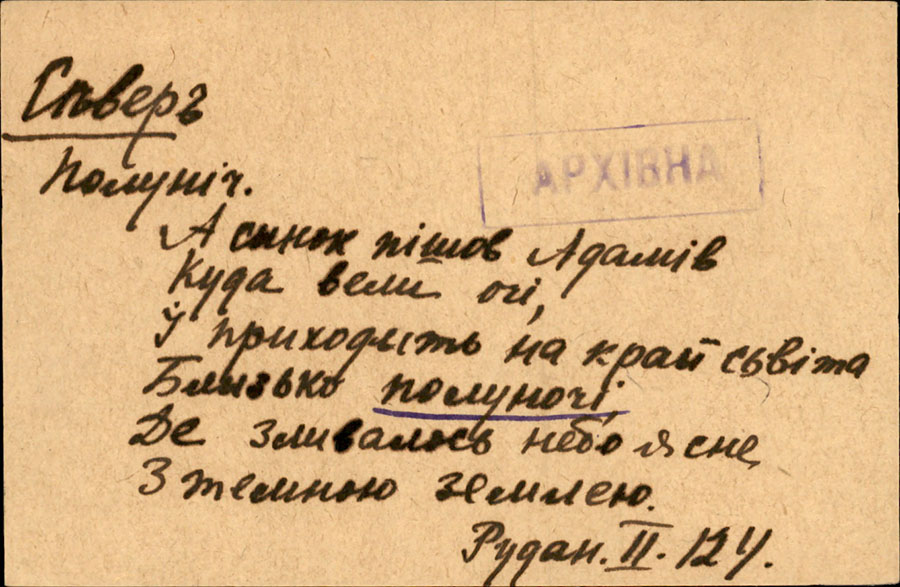 Сѣверъ
АРХІВНА
Полуніч.
А синок пішов Адамів
Куда вели очі,
Ӱ приходыть на край сьвіта
Близько полуночі
Де зливалось небо ясне
З темною землею.
Рудан. II. 124.